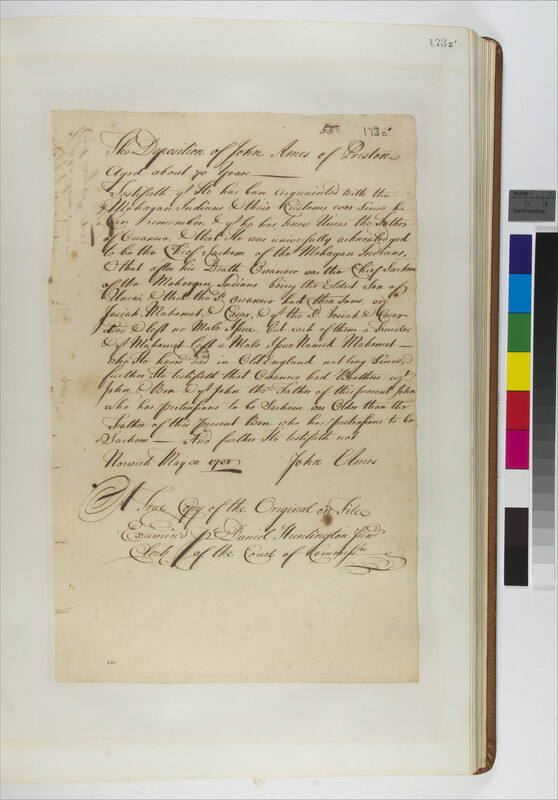 173z'
55 173z'
The Deposition of John Ames of Preston
Aged about 70 Years
Testifeth yt He has ben acquainted with the
Mohagan Indians & their Customs ever Since he
Can remember, & yt he has know Uncas the Father
of Owaneco, & that He was universally acknowledged
to be the Chief Sachem of the Mohagan Indians,
& that after his Death Owaneco was the Chief Sachem
of the Moheagan Indians being the Eldest Son of
Uncas & that the sd Owaneco had three Sons vizt
Josiah, Mahomet, & Cesar, & yt the sd Josiah & Cesar
died & left no Male Issue, but each of them a Female
& yt Mahomet Left a Male Issue Named Mahomet
who He hears died in Old England not long Since,
further He testifeth that Owaneco had Brothers vizt
John & Ben & yt John the Father of this present John
who has pretensions to be Sachem was Older than the
Father of this present Ben who has pretensions to be
Sachem — And further He testifeth not
Norwich May 30 1738 John Ames
A True Copy of the Original on File
Examin'd pr Daniel Huntington Junr
Clerk of the Court of Commissrs